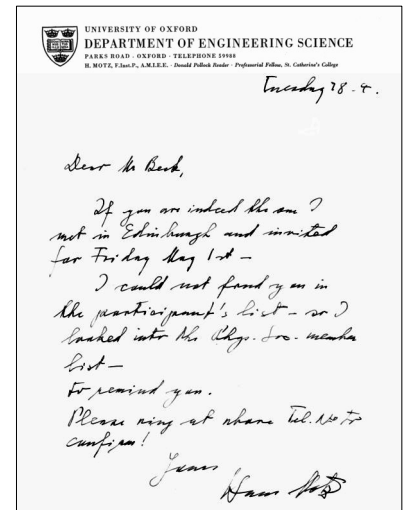 UNIVERSITY OF OXFORD
DEPARTMENT OF ENGINEERING SCIENCE
PARKS ROAD · OXFORD · TELEPHONE 59988
H. MOTZ, F.Inst.P., A.M.I.E.E. - Donald Pollock Reader - Professorial Fellow, St. Catherine's College
Tuesday 28. 4.
Dear Mr Beck,
If you are indeed the one I
met in Edinburgh and invited
for Friday May 1st —
I could not find you in
the participant's list — so I
looked into the Phys. Soc. member
list —
To remind you.
Please ring at above Tel. No to
confirm!
Yours
Hans Motz